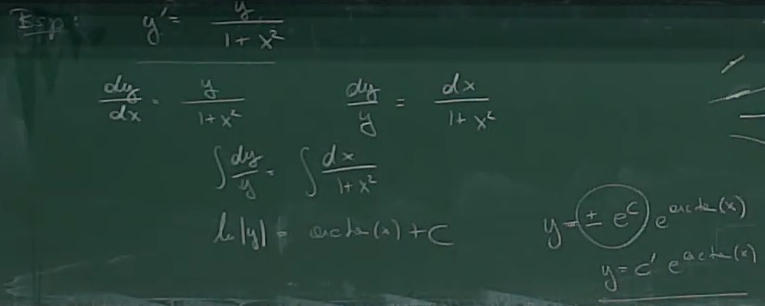 Bsp: y' = y / (1 + x²)
dy/dx = y / (1 + x²)    dy/y = dx / (1 + x²)
∫ dy/y = ∫ dx / (1 + x²)
ln |y| = arctan(x) + C    y = ± e^C e^arctan(x)
y = c' e^arctan(x)